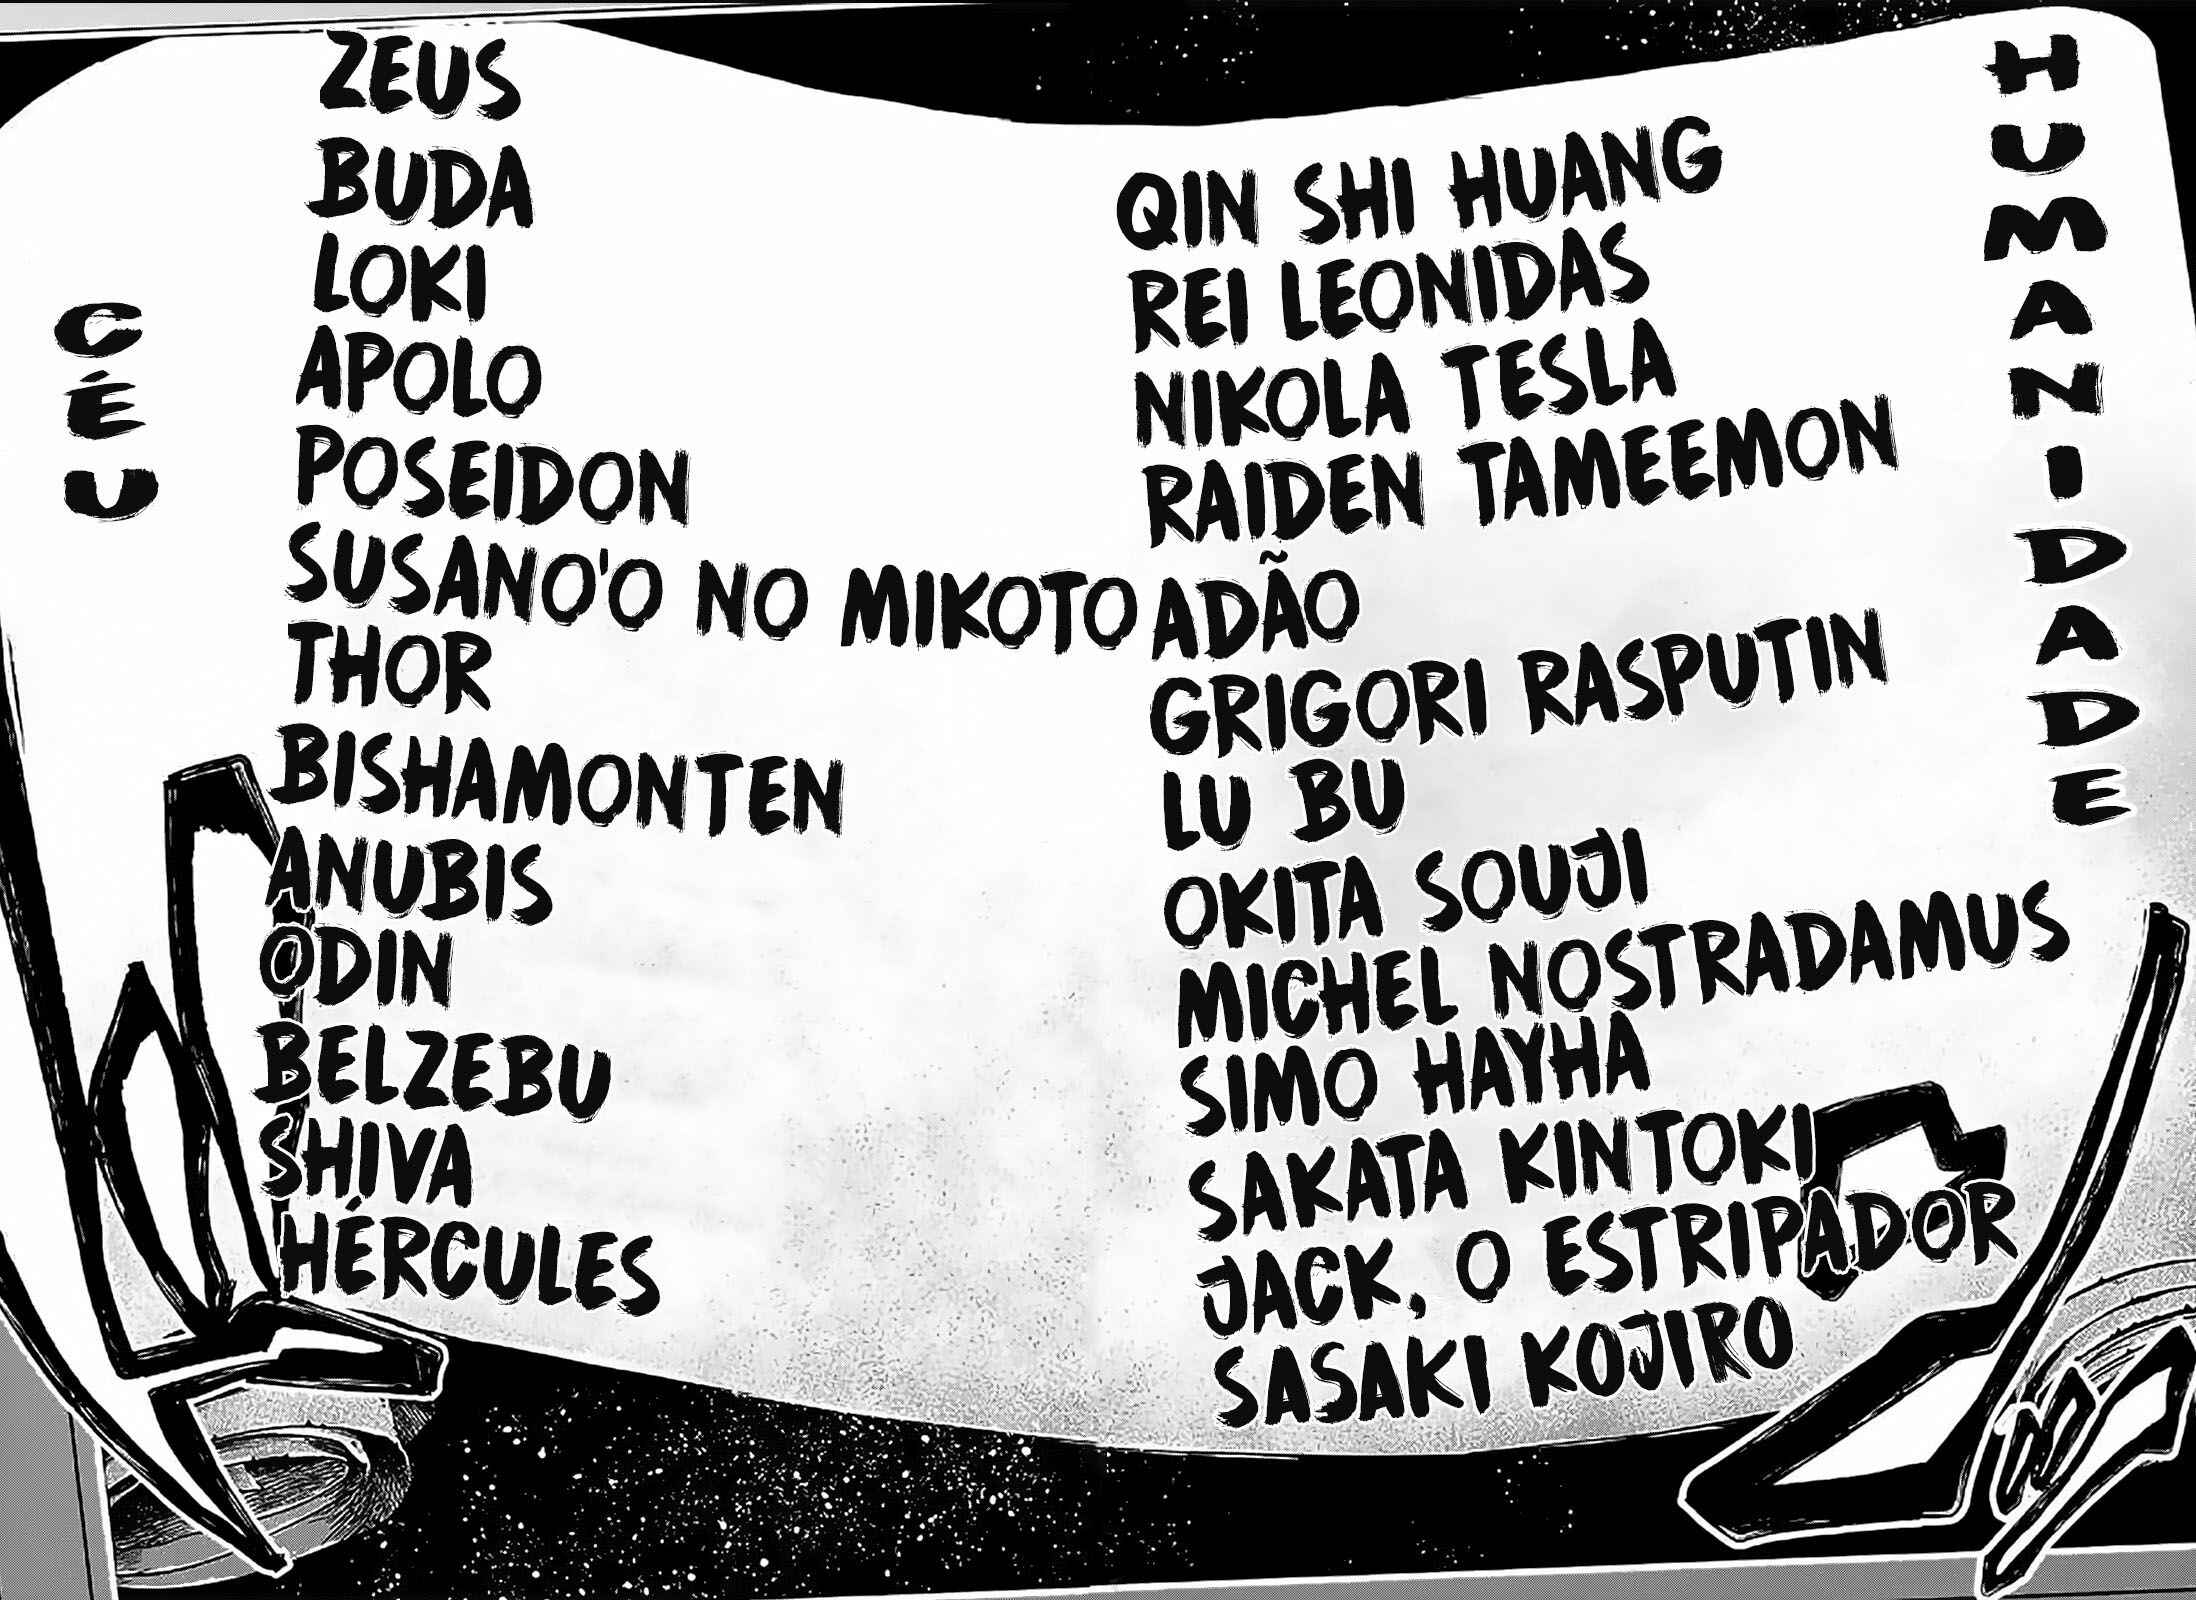 CÉU
ZEUS
BUDA
LOKI
APOLO
POSEIDON
SUSANO'O NO MIKOTO
THOR
BISHAMONTEN
ANUBIS
ODIN
BELZEBU
SHIVA
HÉRCULES
HUMANIDADE
QIN SHI HUANG
REI LEONIDAS
NIKOLA TESLA
RAIDEN TAMEEMON
ADÃO
GRIGORI RASPUTIN
LU BU
OKITA SOUJI
MICHEL NOSTRADAMUS
SIMO HAYHA
SAKATA KINTOKI
JACK, O ESTRIPADOR
SASAKI KOJIRO